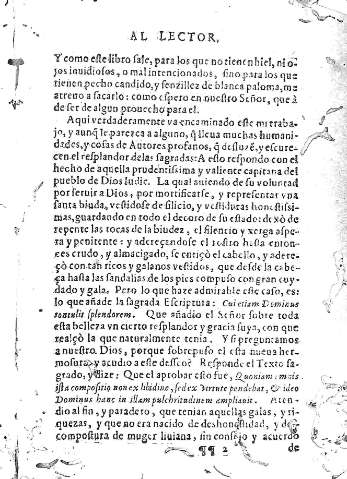 AL LECTOR.
Y como este libro sale, para los que no tienen hiel, ni o-
jos inuidiosos, o mal intencionados, sino para los que
tienen pecho candido, y senzillez de blanca paloma, me
atreuo a sacarlo: como espero en nuestro Señor, que à
de ser de algun prouecho para el.
Aqui verdaderamente va encaminado este mi traba-
jo, y aunq̃ le parezca a alguno, q̃ lleua muchas humani-
dades, y cosas de Autores profanos, q̃ deslustrẽ, y escure-
cen el resplandor delas sagradas: A esto respondo con el
hecho de aquella prudentissima y valiente capitana del
pueblo de Dios Iudic. La qual auiendo de su voluntad
por seruir a Dios, por mortificarse, y representar vna
santa biuda, vestidose de silicio, y vestiduras honestissi-
mas, guardando en todo el decoro de su estado: dexò de
repente las tocas de la biudez, el silencio y xerga aspe-
ra y penitente: y adereçandose el rostro hasta enton-
ces crudo, y almacigado, se enriçò el cabello, y adere-
çò con tan ricos y galanos vestidos, que desde la cabe-
ça hasta las sandalias de los pies compuso con gran cuy-
dado y gala. Pero lo que haze admirable este caso, es:
lo que añade la sagrada Escriptura: Cui etiam Dominus
contulit splendorem. Que añadio el Señor sobre toda
esta belleza vn cierto resplandor y gracia suya, con que
realçò la que naturalmente tenia. Y si preguntamos
a nuestro Dios, porque sobrepuso el esta nueua her-
mosura, y acudio a este desseo? Responde el Texto sa-
grado, y dize: Que el aprobar esto fue, Quoniam omnis
ista compositio non ex libidine, sed ex virtute pendebat, & ideo
Dominus hanc in illam pulchritudinem ampliauit. Aten-
dio al fin, y paradero, que tenian aquellas galas, y ri-
quezas, y que no era nacido de deshonestidad, y de
compostura de muger liuiana, sin consejo y acuerdo
¶¶ 2 de